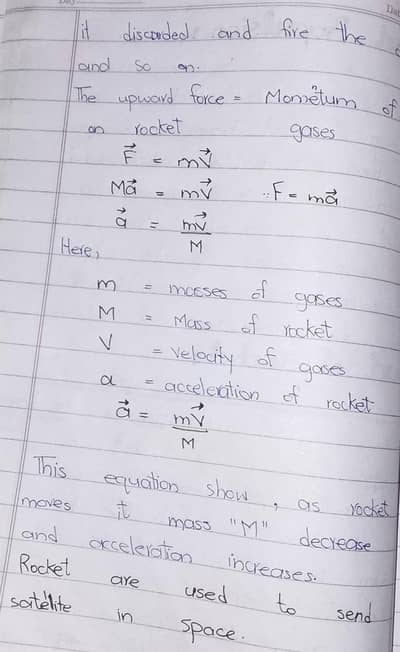 it discarded and fire the
and so on.
The upward force = Momentum of
on rocket gases
F⃗ = mV⃗
Ma⃗ = mV⃗ ∴ F = ma⃗
a⃗ = mV⃗/M
Here,
m = masses of gases
M = Mass of rocket
V = velocity of gases
a = acceleration of rocket
a⃗ = mV⃗/M
This equation show, as rocket
moves it mass "M" decrease
and acceleration increases.
Rocket are used to send
satelite in space.